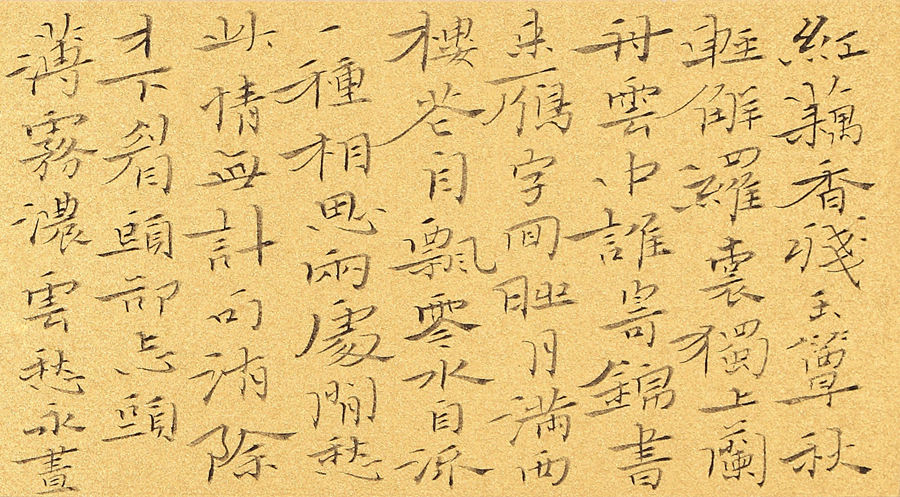 紅藕香殘玉簟秋
輕解羅裳獨上蘭
舟雲中誰寄錦書
來鴈字回時月滿西
樓花自飄零水自流
一種相思兩處閒愁
此情無計可消除
才下眉頭卻上心頭
薄霧濃雲愁永晝